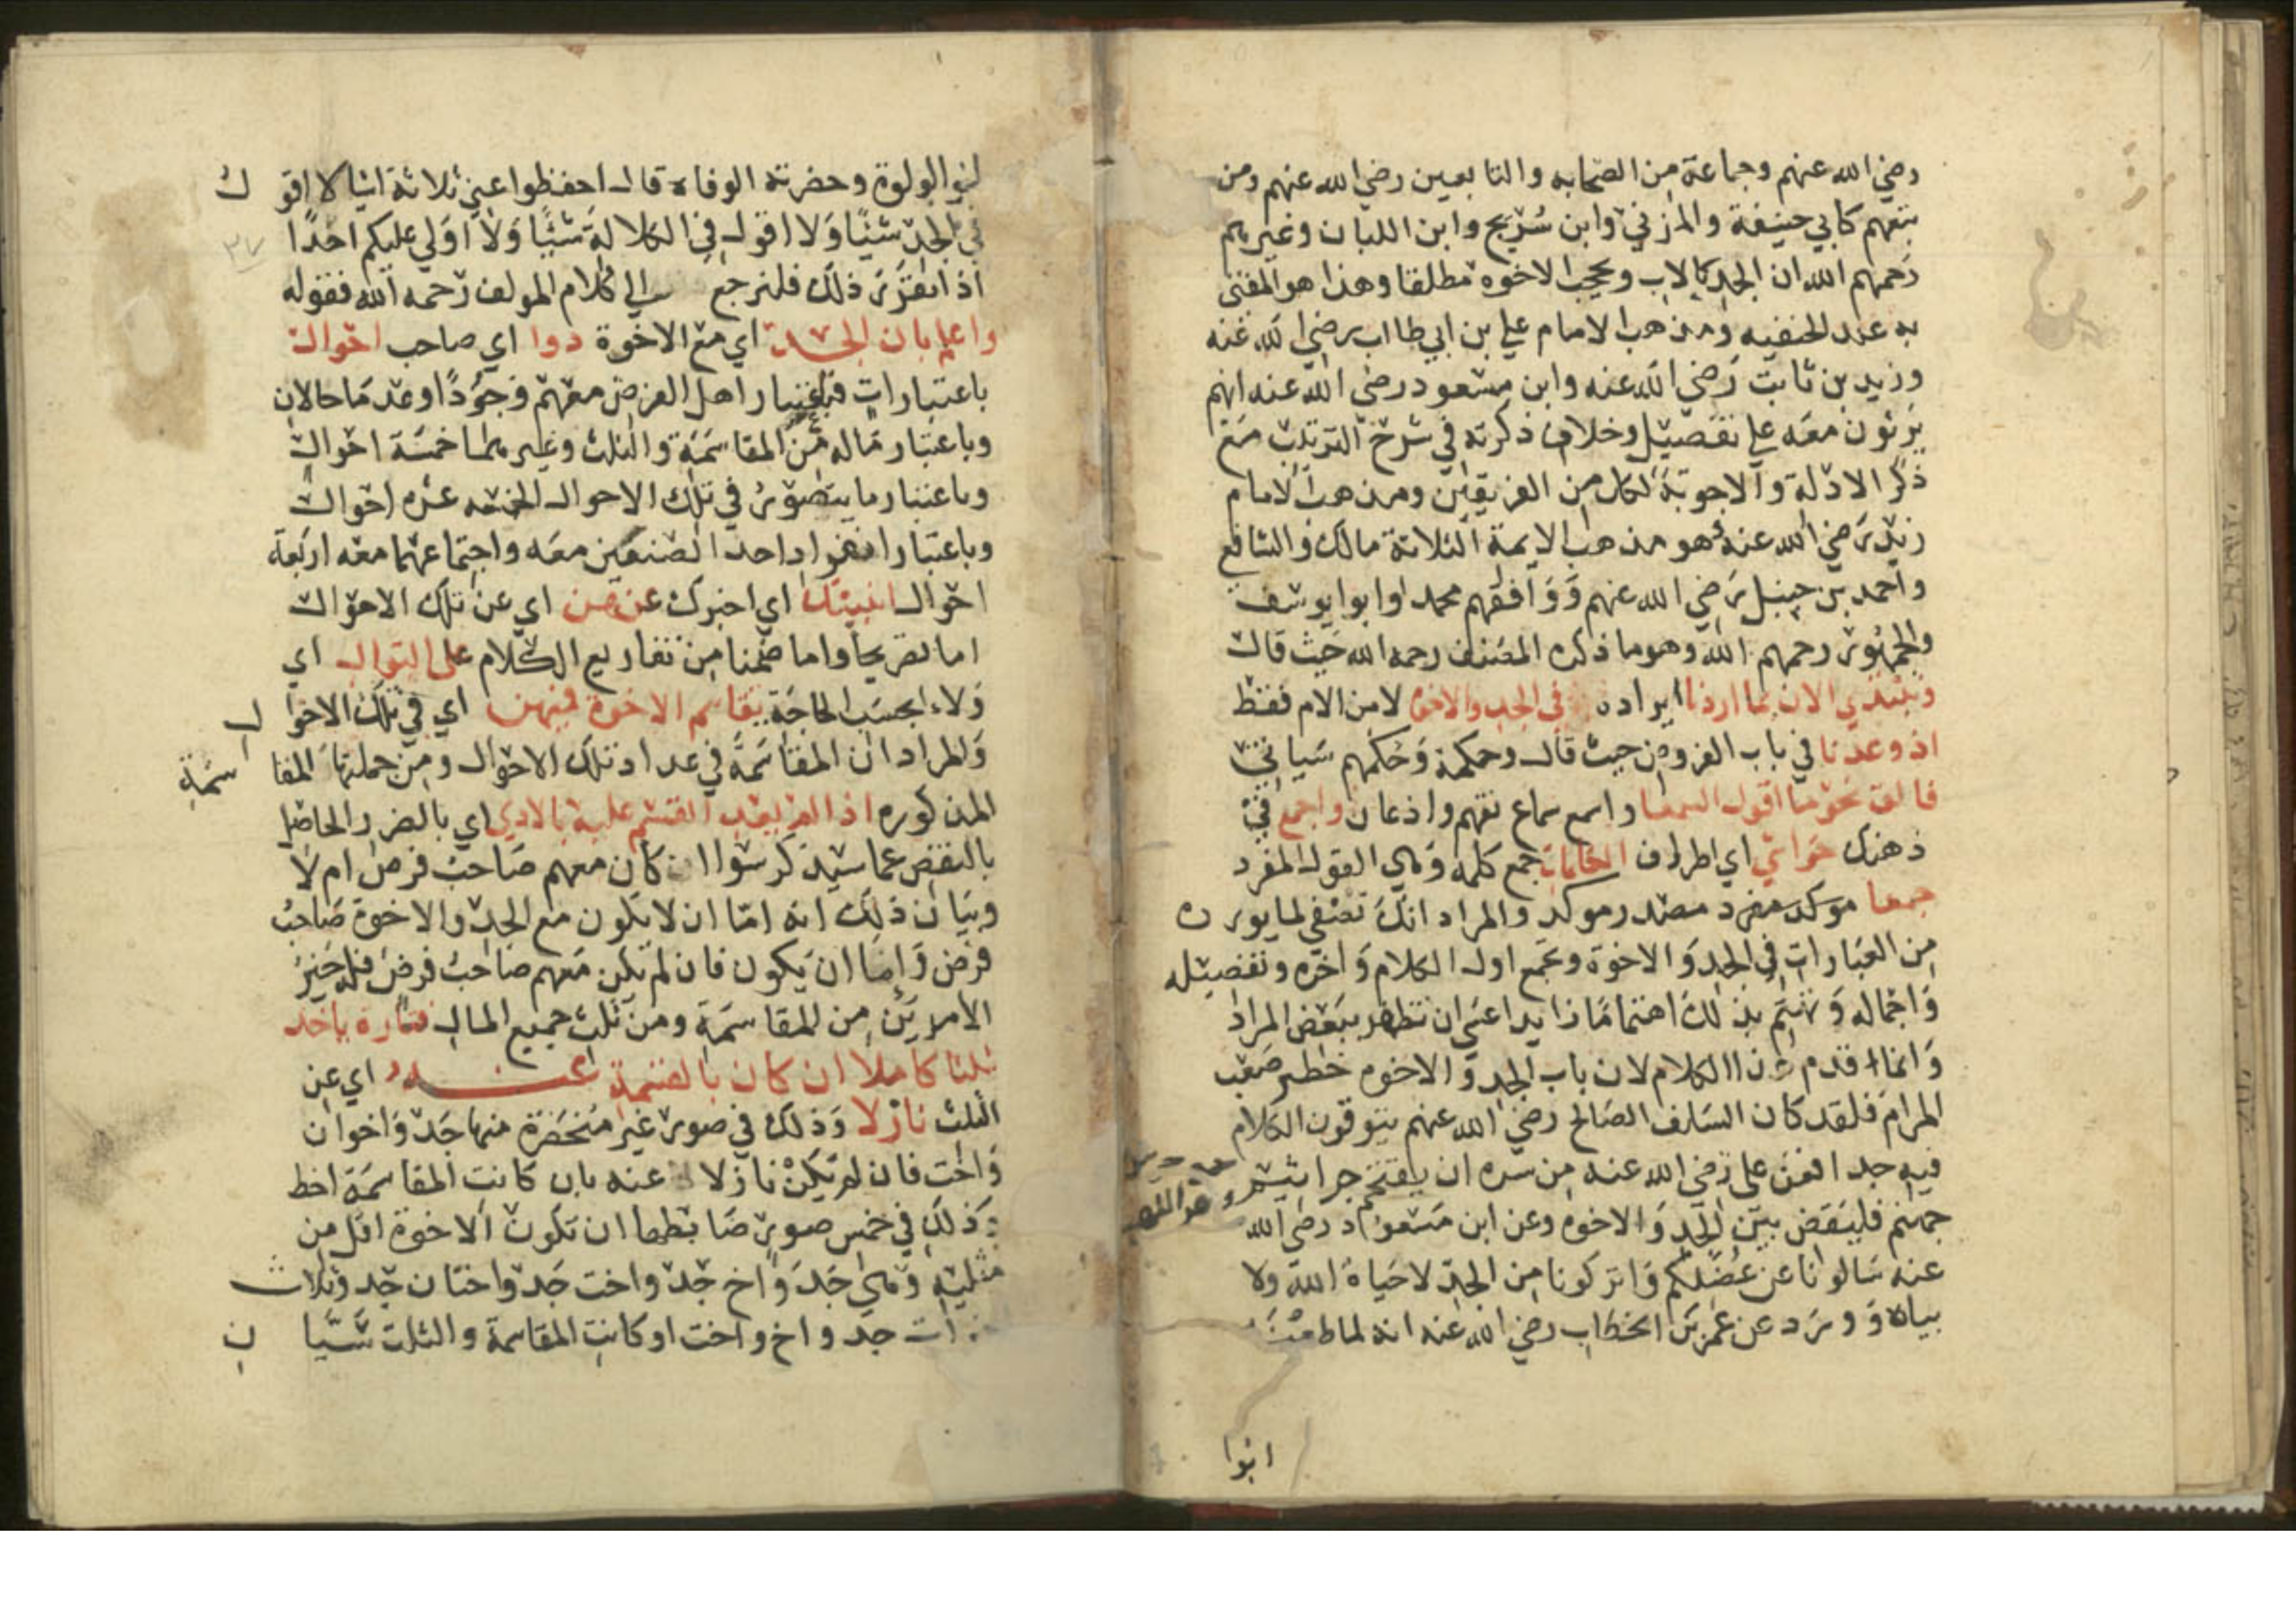 رضي الله عنهم وجماعة من الصحابه والتابعين رضي الله عنهم ومن
تبعهم كابي حنيفة والمزني وابن سُريج وابن اللبان وغيرهم
رحمهم الله ان الجد كالاب ويحجب الاخوه مطلقا وهذا هو المفتى
به عند الحنفيه ومذهب الامام علي بن ابي طالب رضي الله عنه
وزيد بن ثابت رضي الله عنه وابن مسعود رضي الله عنه انهم
يرثون معه على تفصيل وخلاف ذكرته في شرح الترتيب مع
ذكر الادلة والاجوبة لكل من الفريقين ومذهب الامام
زيد رضي الله عنه هو مذهب الايمة الثلاثة مالك والشافع
واحمد بن حنبل رضي الله عنهم ووافقهم محمد وابوا يوسف
والجمهور رحمهم الله وهو ما ذكره المصنف رحمه الله حيث قال
ونبتدي الان بما اردنا ايراده في الجد والاخوه لا من الام فقط
اذ وعدنا في باب الفروض حيث قال وحكمه وحكمهم سياتي
فالق نحو ما اقول السمعا واسمع سماع تفهم واذعان واجمع في
ذهنك حواشي اي اطراف الكلمات جمع كلمه وهي القول المفرد
جمعا موكد مفرد مصدر موكد والمراد انك تصغي لما يورده
من العبارات في الجد والاخوة وتجمع اول الكلام واخره وتفصيله
واجماله وتهتم بذلك اهتماما زايدا عسى ان تظفر ببعض المراد
وانما قدم هذا الكلام لان باب الجد والاخوه خطير صعب
المرام فلقد كان السلف الصالح رضي الله عنهم يتوقون الكلام
فيه جدا فعن علي رضي الله عنه من سره ان يقتحم جراثيم
جهنم فليقض بين الجد والاخوه وعن ابن مسعود رضي الله
عنه سالونا عن عُضَلكم واتركونا من الجد لا حياه الله ولا
بياه و ورد عن عمر بن الخطاب رضي الله عنه انه لما طعنه
ابوا
ابوا لولوة وحضرته الوفاه قال احفظوا عني ثلاثة اشيا لا اقول
في الجد شيئا ولا اقول في الكلالة شيئا ولا اولي عليكم احدا
اذا تقرر ذلك فلنرجع الى كلام المولف رحمه الله فقوله
واعلم بان الجد اي مع الاخوة ذوا اي صاحب احوال
باعتبارات فباعتبار اهل الفرض معهم وجودًا وعدما حالان
وباعتبار ماله من المقاسمة والثلث وغيرهما خمسة احوال
وباعتبار ما يتصور في تلك الاحوال الخمسه عشره احوال
وباعتبار انفراد احد الصنفين معه واجتماعهما معه اربعة
احوال انبيك اي اخبرك عن هن اي عن تلك الاحوال
اما تصريحا واما ضمنا من تفاريع الكلام على التوال اي
ولاء بحسب الحاجة يقاسم الاخوة فيهن اي في تلك الاحوال
والمراد ان المقاسمة في عداد تلك الاحوال ومن جملتها المقاسمة
المذكوره اذا لم يعد القسم عليه بالاذي اي بالضرر الحاصل
بالنقص عما سيذكر سوا ان كان معهم صاحب فرض ام لا
وبيان ذلك انه اما ان لا يكون مع الجد والاخوة صاحب
فرض واما ان يكون فان لم يكن معهم صاحب فرض فله خير
الامرين من المقاسمة ومن ثلث جميع المال فتارة ياخذ
ثلثا كاملا ان كان بالقسمة عنه اي عن
الثلث نازلا وذلك في صور غير منحصرة منها جد واخوان
واخت فان لم تكن نازلا عنه بان كانت المقاسمة احظ
وذلك في خمس صور ضابطها ان تكون الاخوة اقل من
مثليه وهي جد واخ جد واخت جد واختان جد وثلاث
اخوات جد واخ واخت او كانت المقاسمة والثلث سيان